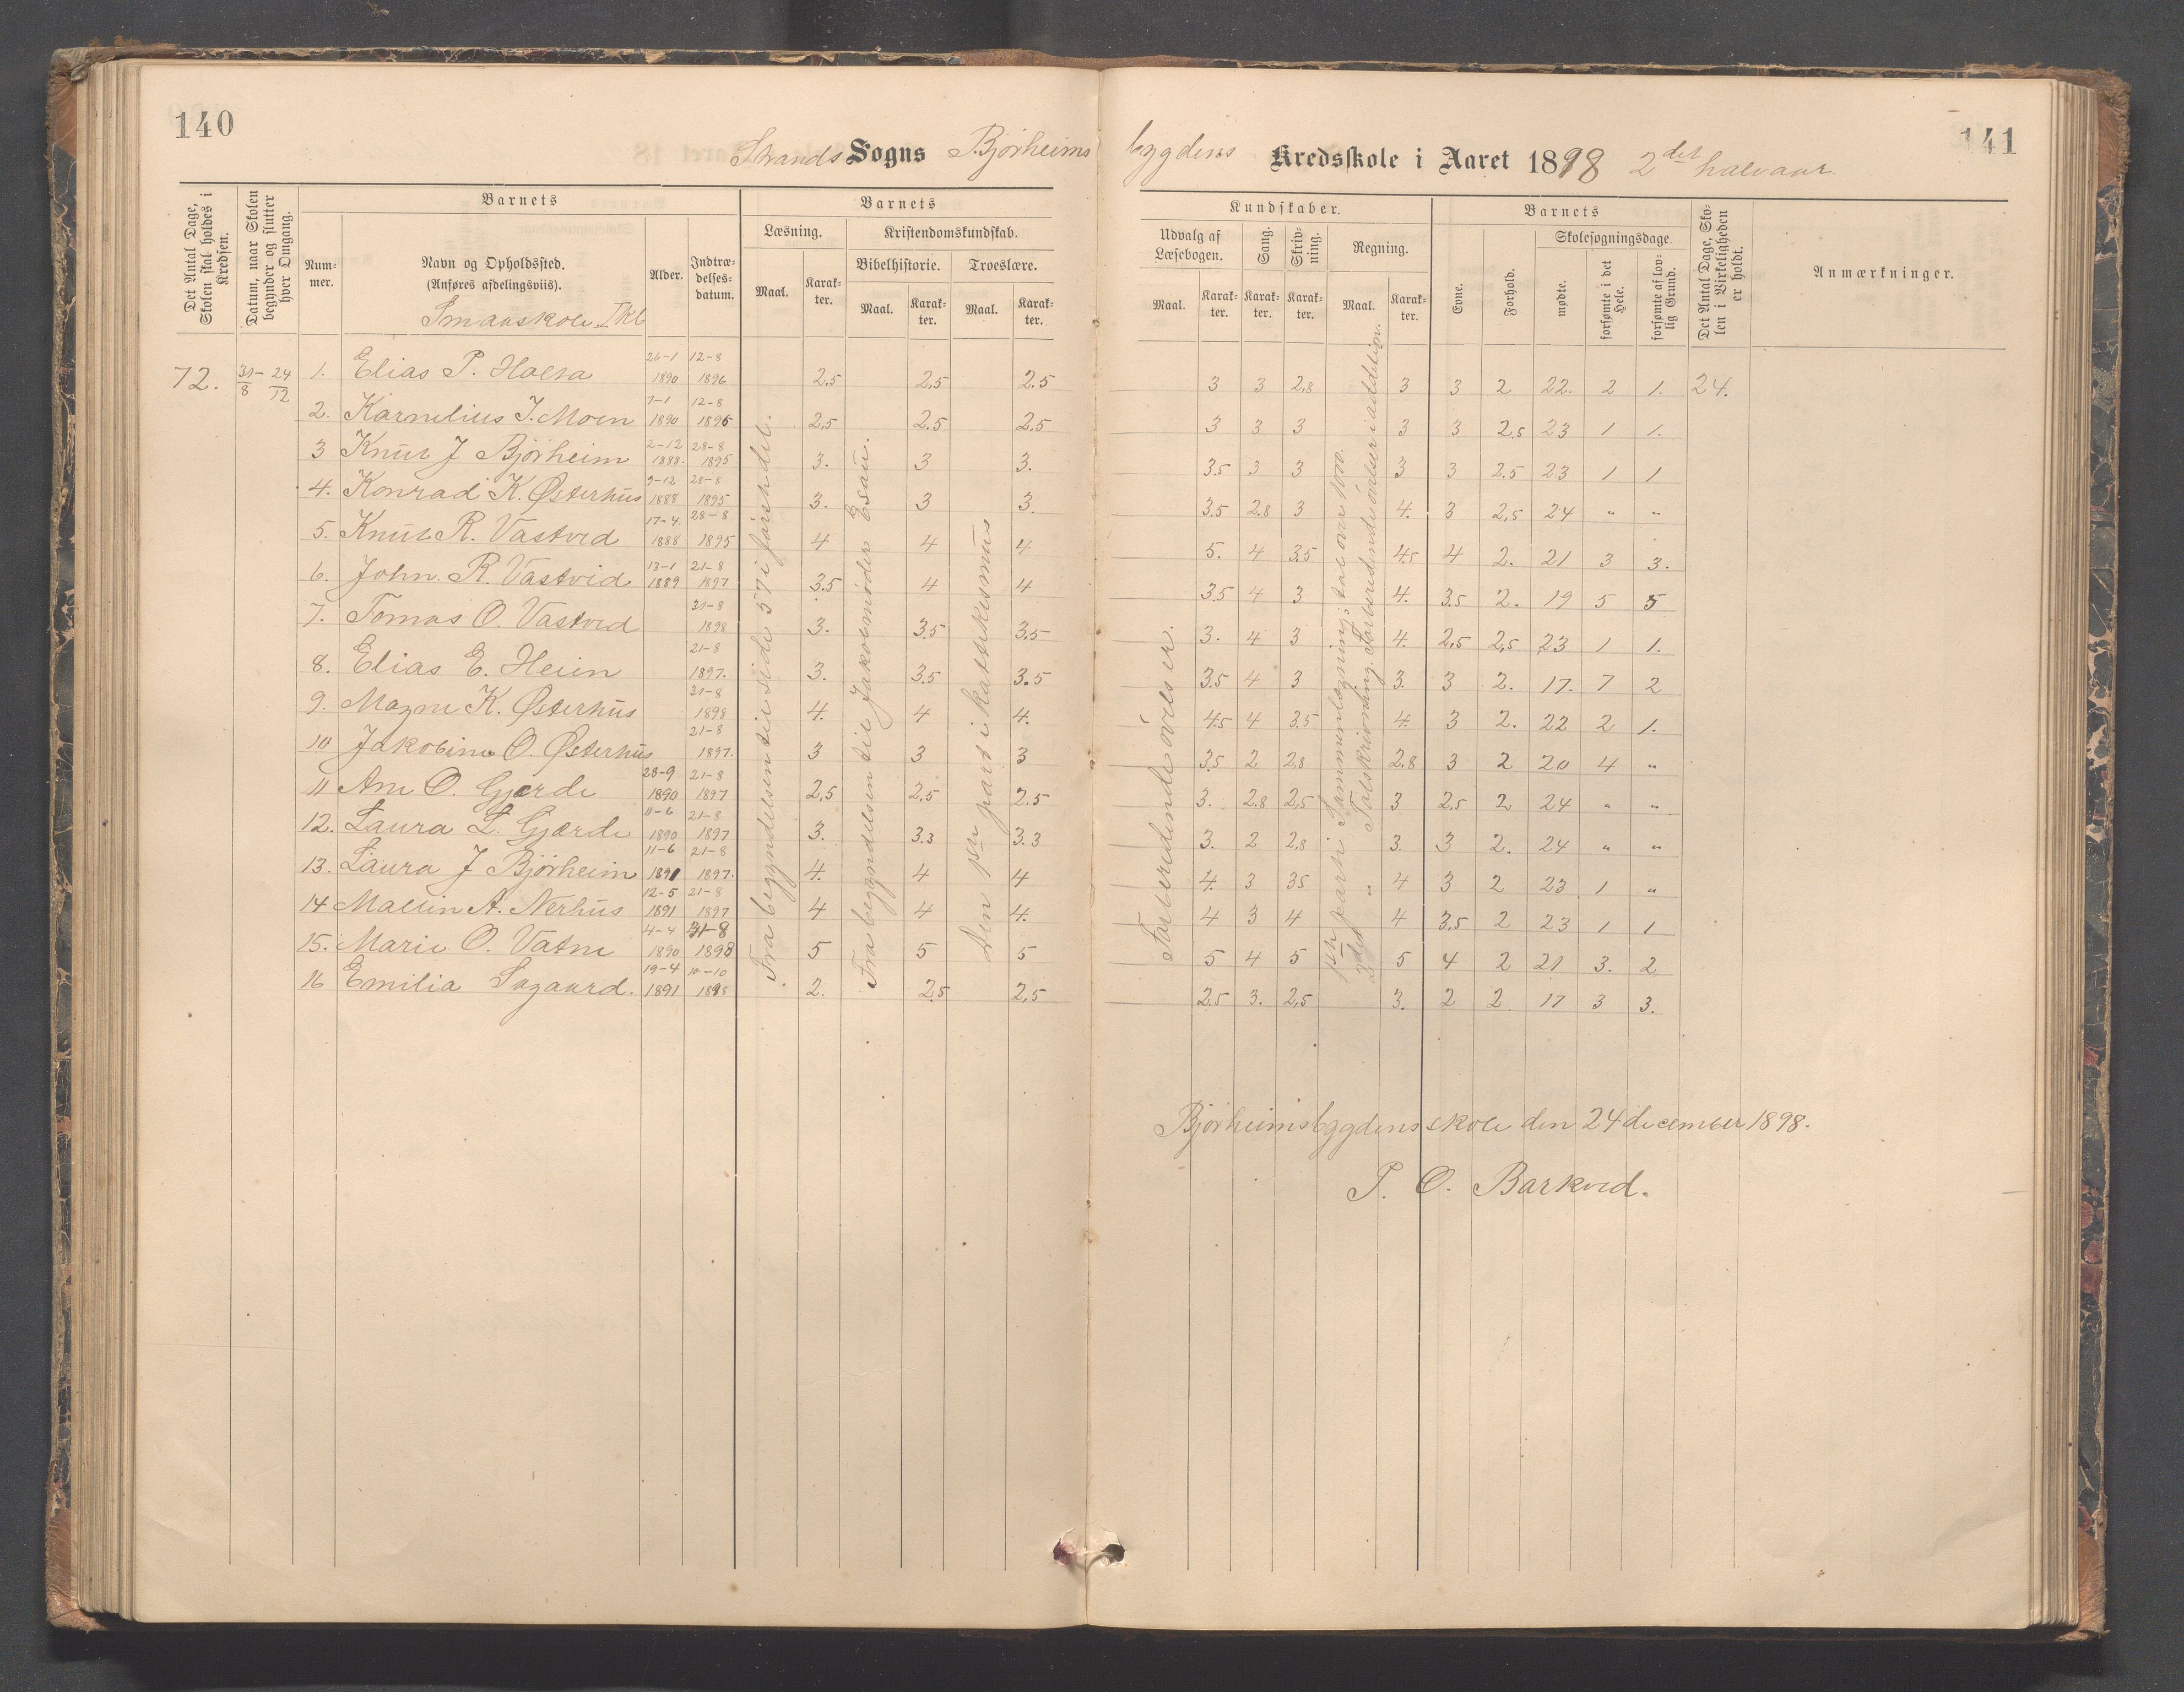 140
Strands Sogns Bjørheims
Det Antal Dage, Skolen skal holdes i Kredsen.
Datum, naar Skolen begynder og slutter hver Omgang.
Barnets
Nummer.
Navn og Opholdssted.
(Anføres afdelingsviis).
Smaaskole I Kl
Alder.
Indtrædelses-datum.
Barnets
Læsning.
Maal.
Karakter.
Kristendomskundskab.
Bibelhistorie.
Troeslære.
Maal.
Karakter.
Maal.
Karakter.
72. 31/8 – 24/12
1. Elias P. Holta 26-1 1890 12-8 1896 2,5 2,5 2,5
2. Karnelius T. Moen 7-1 1890 12-8 1896 2,5 2.5 2,5
3 Knut J Bjørheim 2-12 1888. 28-8 1895 3. 3 3.
4. Konrad K. Østerhus 9-12 1888 28-8 1895 3. 3 3.
5. Knut R. Vastved 17-4. 1888 28-8 1895 4 4 4
6. John. R. Vastvid 13-1 1889 21-8 1897 3.5 4 4
7. Tomas O. Vastved 31-8 1898 3. 3.5 3.5
8. Elias E. Heien 21-8 1897. 3. 3.5 3.5
9. Magne K. Østerhus 31-8 1898 4. 4 4.
10 Jakobine O. Østerhus 21-8 1897. 3 3 3
11 Ane O. Gjerde 28-9 1890 21-8 1897 2,5 2,5 2.5
12. Laura L. Gjærde 11-6 1890 21-8 1897 3. 3.3 3.3
13. Laura J Bjørheim 11-6 1891 21-8 1897. 4. 4 4
14 Mallin A. Nerhus 12-5 1891 21-8 1897 4 4 4.
15. Marie O. Vatne 4-4 1890 31-8 1898 5 5 5
16 Emilia Sagaard. 19-4 1891 10-10 1898 2. 2.5 2,5
Fra begyndelsen til side 57 i
Fra begyndelsen til Jakob møder Esau.
Den 1ste part i Katekismus
141
bygdens Kredsskole i Aaret 1898 2det halvaar.
Kundskaber.
Udvalg af Læsebogen.
Maal.
Karakter.
Sang.
Karakter.
Skrivning.
Karakter.
Regning.
Maal.
Karakter.
Barnets
Evne.
Forhold.
Skolesøgningsdage.
mødte.
forsømte i det Hele.
forsømte af lovlig Grund.
Det Antal Dage, Skolen i Virkeligheden er holdt.
Anmærkninger.
3 3 2,8 3 3 2 22. 2 1. 24.
3 3 3 3 3 2,5 23 1 1.
3.5 3 3 3 3 2.5 23 1 1
3.5 2.8 3 4. 3 2,5 24 " "
5. 4 3.5 4.5 4 2. 21 3 3.
3.5 4 3 4. 3.5 2. 19 5 5
3. 4 3 4. 2,5 2,5 23 1 1.
3.5 4 3 3. 3 2. 17. 7 2
4.5 4 3.5 4. 3 2. 22 2 1.
3.5 2 2.8 2.8 3 2 20 4 "
3. 2.8 2,5 3 2.5 2 24 " "
3. 2 2,8 3. 3 2. 24 " "
4. 3 3.5 4 3 2 23 1 "
4 3 4 4 3.5 2 23 1 1
5 4 5 5 4 2 21 3. 2
2.5 3. 2,5 3. 2 2 17 3 3.
Forberedende øvelser.
1ste part i Sammenlægning; tal over 1000.
2det " Talskrivning. Forberedende øvelser i addition.
Bjørheimsbygdens skole den 24 december 1898.
P. O. Barkved.